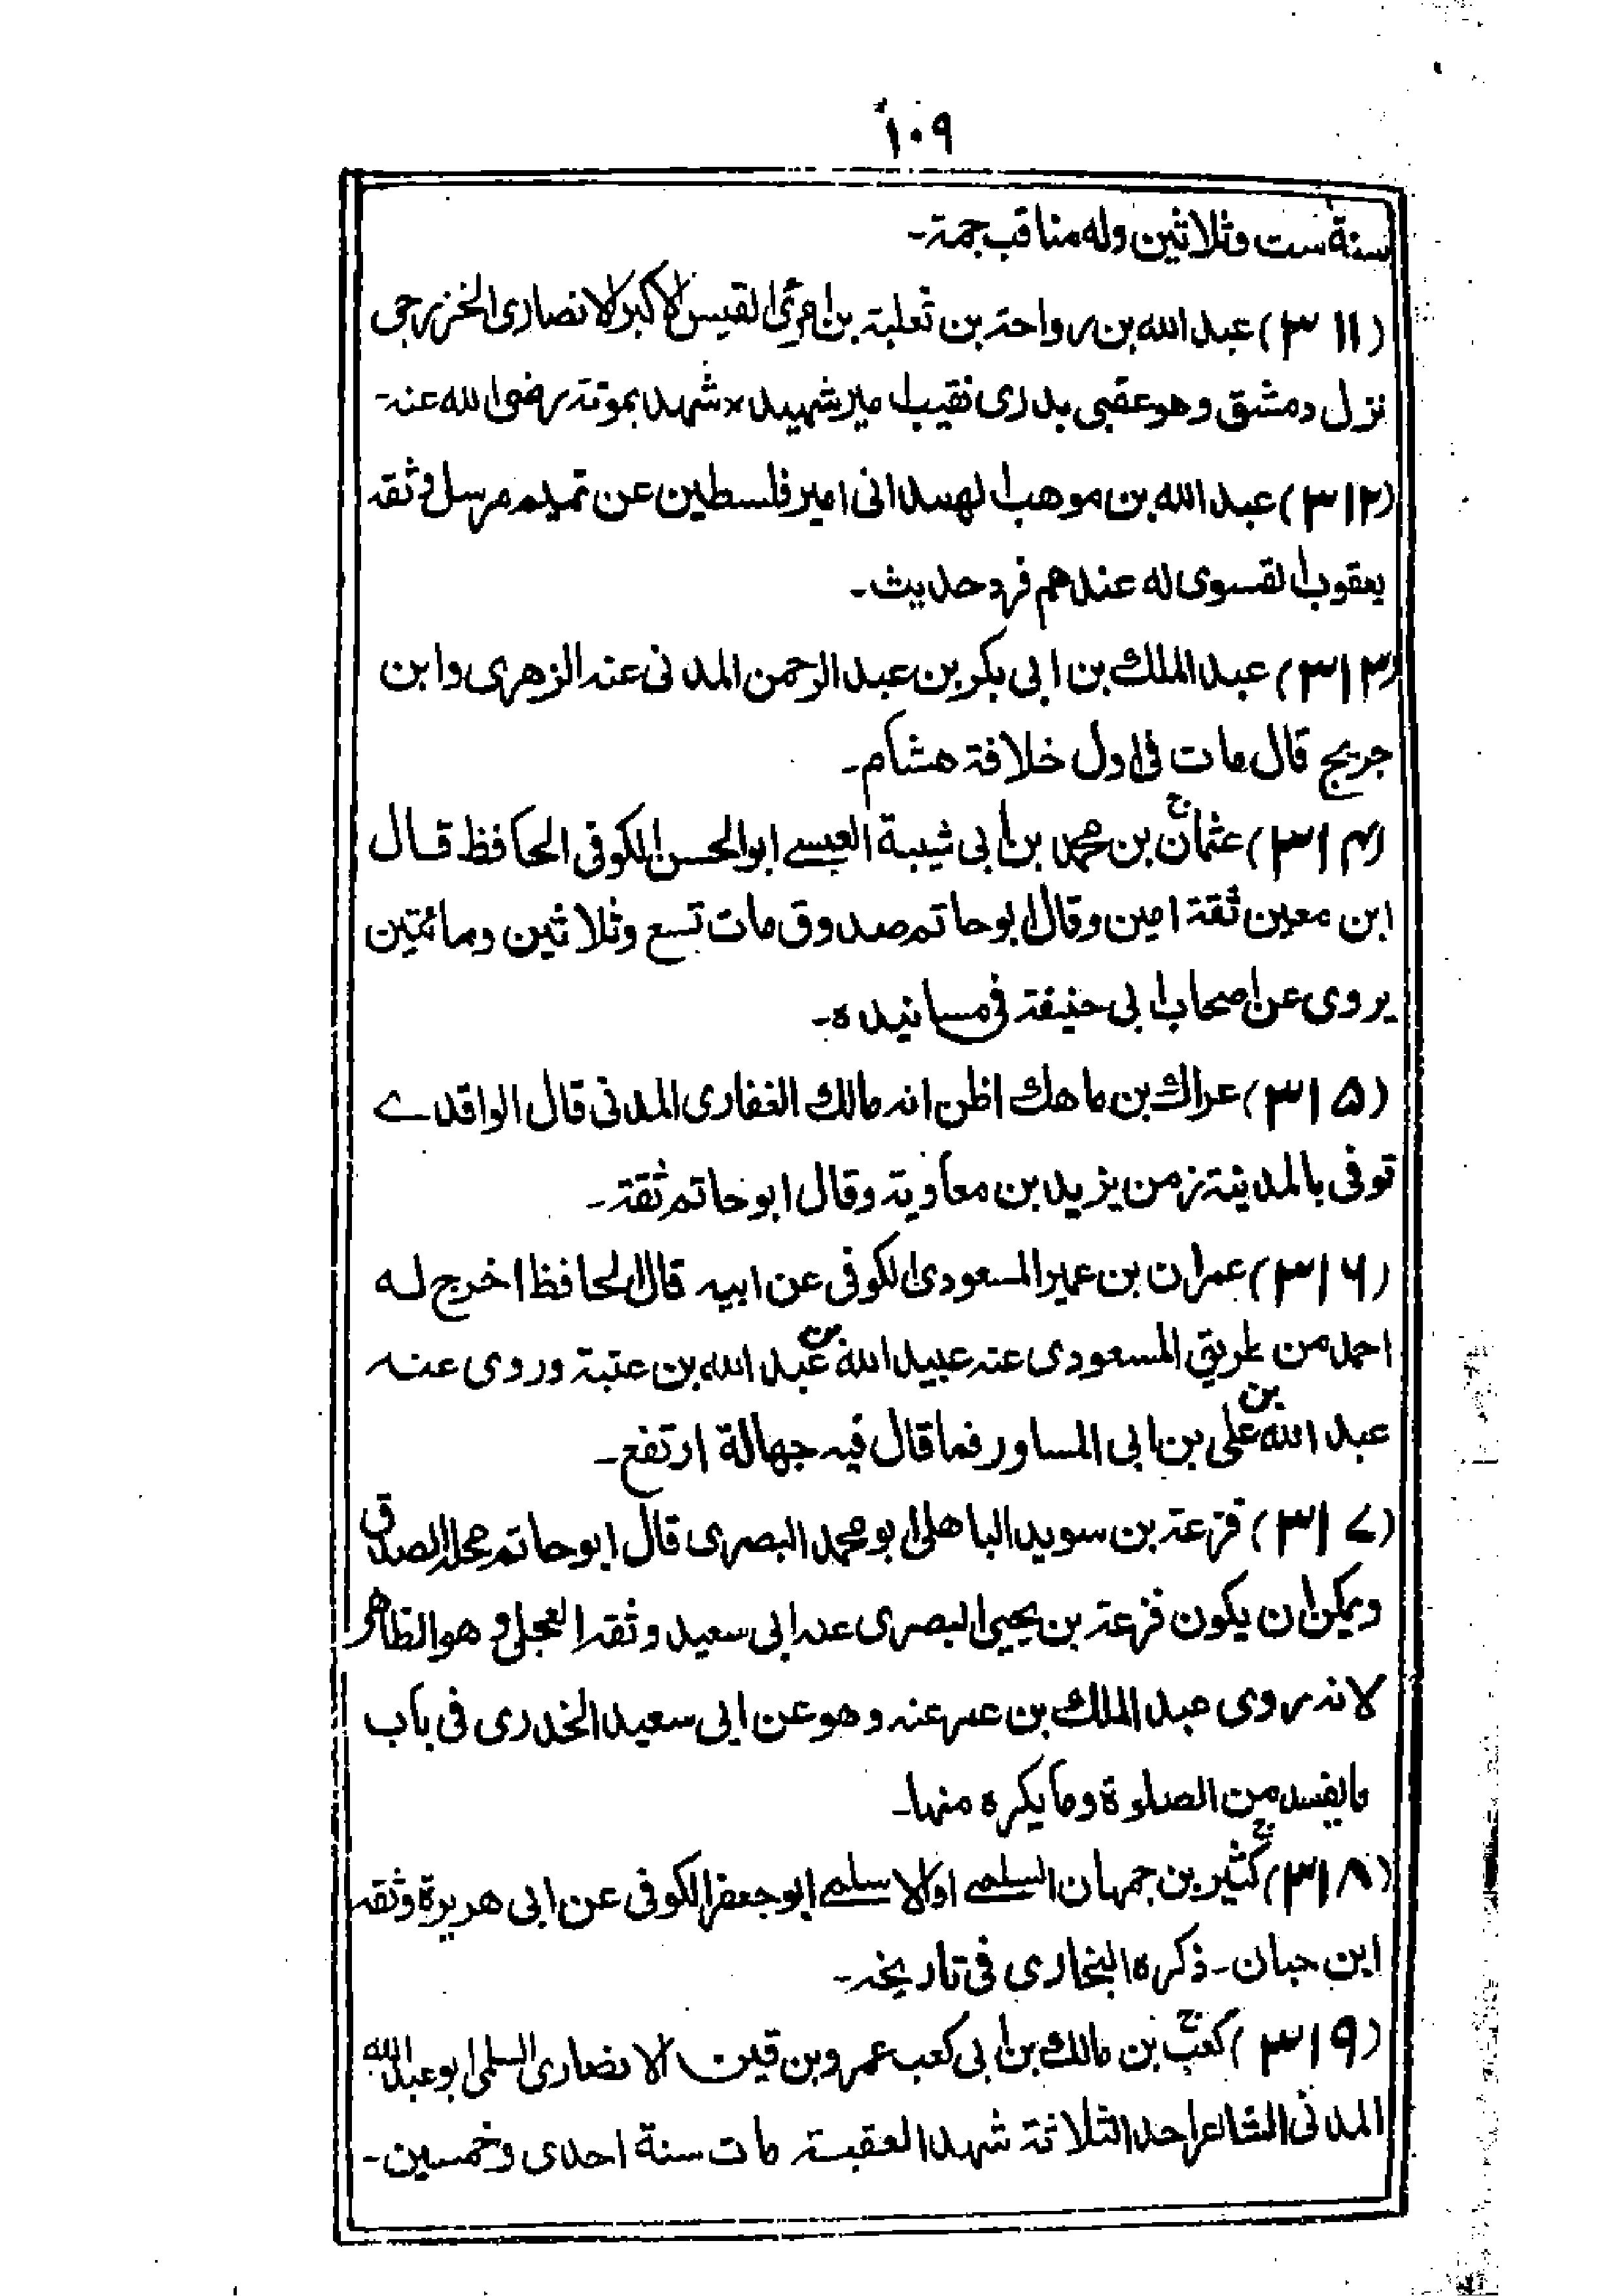 ١٠٩
سنة ست وثلاثين وله مناقب جمة۔
(٣١١) عبد الله بن رواحة بن ثعلبة بن امرئ القيس الاكبر الانصاری الخزرجی
نزل دمشق وهو عقبی بدری نقيب امير شهيد × شهد بموتة رضی الله عنه۔
(٣١٢) عبد الله بن موهب الهمدانی امير فلسطين عن تميم مرسل وثقه
يعقوب الفسوی له عندهم فرد حديث۔
(٣١٣) عبد الملك بن ابی بكر بن عبد الرحمن المدنی عنه الزهری وابن
جريج قال مات فی اول خلافة هشام۔
(٣١۴) عثمان بن محمد بن ابی شيبة العبسے ابو الحسن الكوفی الحافظ قال
ابن معين ثقة امين وقال ابو حاتم صدوق مات تسع وثلاثين ومائتين
يروی عن اصحاب ابی حنيفة فی مسانيده۔
(٣١۵) عراك بن ماهك اظن انه مالك الغفاری المدنی قال الواقدے
توفی بالمدينة زمن يزيد بن معاوية وقال ابو حاتم ثقة۔
(٣١۶) عمران بن عمير المسعودی الكوفی عن ابيه قال الحافظ اخرج له
احمد من طريق المسعودی عنه عبيد الله بن عبد الله بن عتبة وروی عنه
عبد الله بن علی بن ابی المساور فما قال فيه جهالة ارتفع۔
(٣١٧) قزعة بن سويد الباهلی ابو محمد البصری قال ابو حاتم محله الصدق
ويمكن ان يكون قزعة بن يحيی البصری عن ابی سعيد وثقه العجلی وهو الظاهر
لانه روی عبد الملك بن عمير عنه وهو عن ابی سعيد الخدری فی باب
ما يفسد من الصلوة وما يكره منها۔
(٣١٨) كثير بن جمهان السلمے او الاسلمے ابو جعفر الكوفی عن ابی هريرة وثقه
ابن حبان۔ ذكره البخاری فی تاريخه۔
(٣١٩) كعب بن مالك بن ابی كعب عمرو بن قين الانصاری السلمی ابو عبد الله
المدنی الشاعر احد الثلاثة شهد العقبة مات سنة احدی وخمسين۔